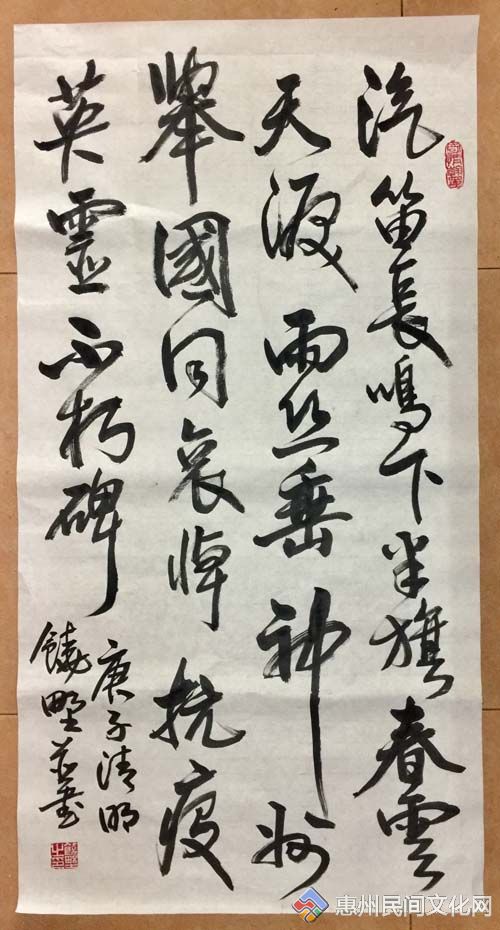 汽笛長鳴下半旗春雲
天淚雨丝垂神州
舉國同哀悼抗疫
英靈不朽碑
庚子清明
饒野并書
惠州民间文化网